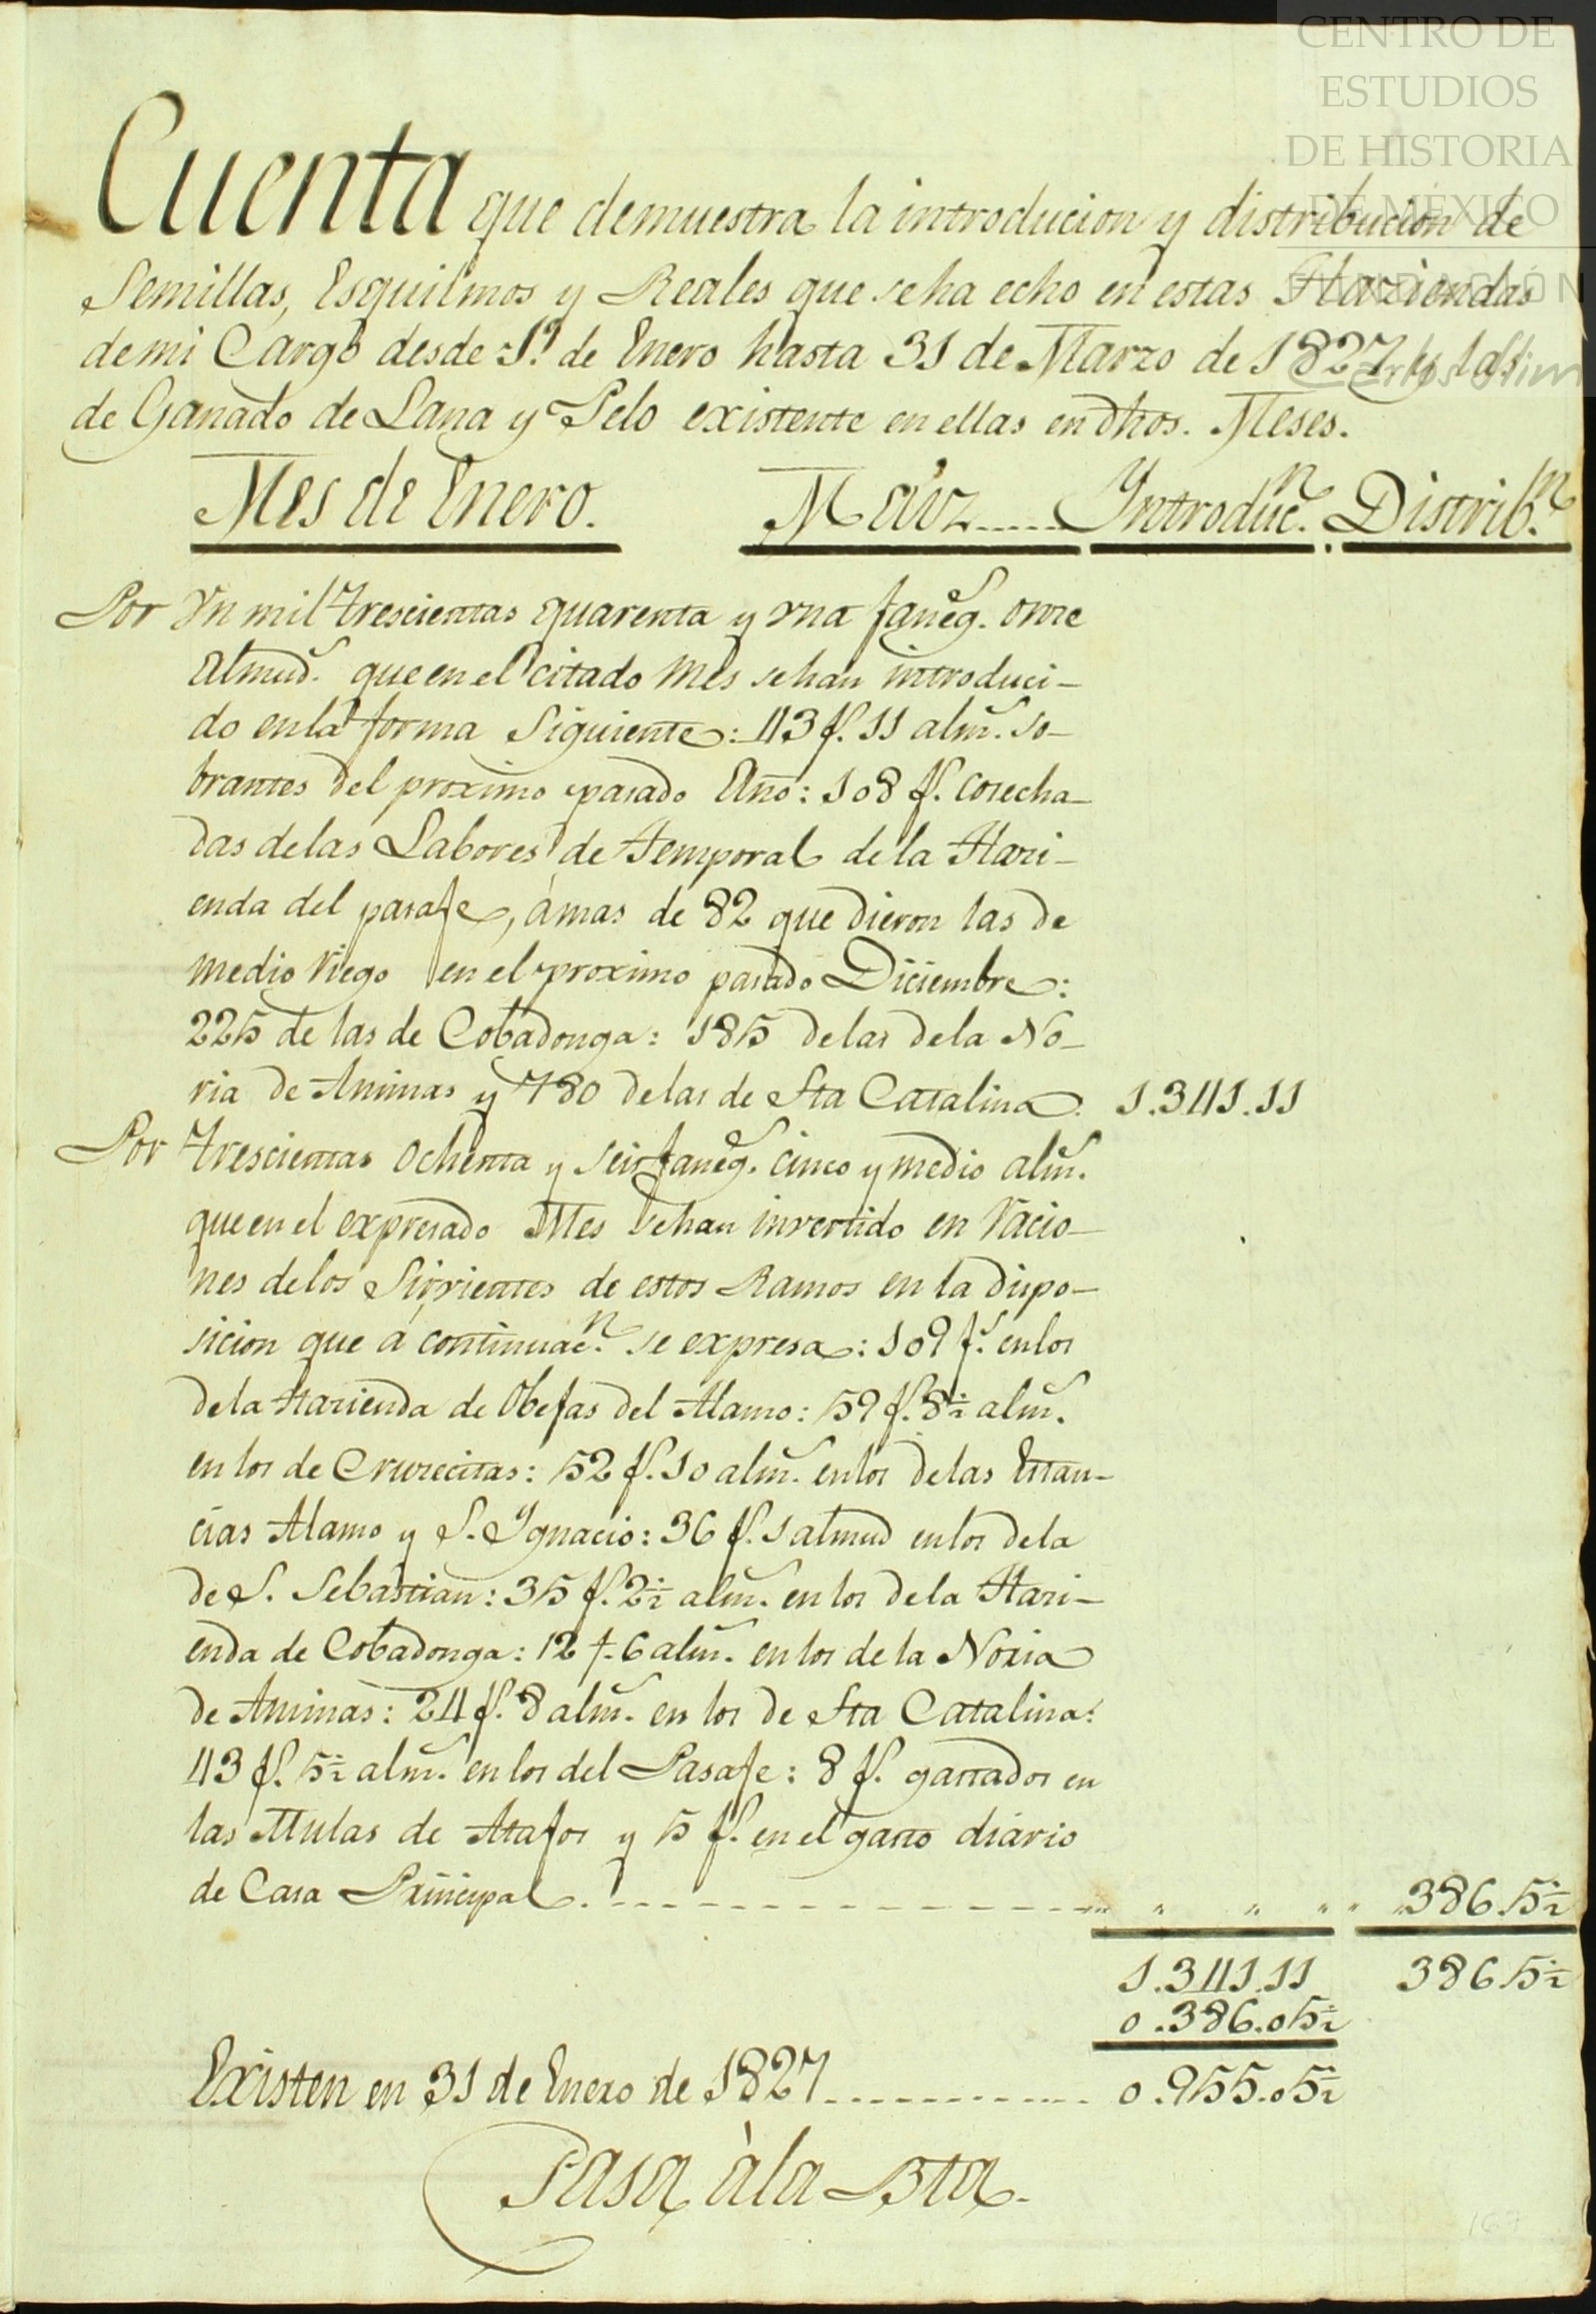 CENTRO DE
ESTUDIOS
DE HISTORIA
DE MÉXICO
FUNDACIÓN
Carlos Slim
Cuenta que demuestra la introducion y distribucion de
Semillas, Esquilmos y Reales que se ha echo en estas Haziendas
de mi Cargo desde 1º. de Enero hasta 31 de Marzo de 1827 y las
de Ganado de Lana y Pelo existente en ellas en dhos. Meses.
Mes de Enero. Maiz..... Introducn. Distribn.
Por Un mil trescientas quarenta y una faneg. onze
Almuds. que en el citado Mes se han introduci-
do en la forma Siguiente: 43 fs. 11 alms. so-
brantes del proximo pasado Año: 108 fs. cosecha-
das de las Labores de temporal de la Hazi-
enda del pasaje, á mas de 82 que dieron las de
medio riego en el proximo pasado Diciembre:
225 de las de Cobadonga: 185 de las de la No-
ria de Animas y 780 de las de Sta Catalina. 1.341.11
Por trescientas ochenta y seis fanegs. cinco y medio alms.
que en el expresado Mes se han invertido en racio-
nes de los Sirvientes de estos Ramos en la dispo-
sicion que á continuacn. se expresa: 109 fs. en los
de la Hazienda de Obejas del Alamo: 59 fs. 8½ alms.
en los de Cruzecitas: 52 fs. 10 alms. en los de las Estan-
cias Alamo y S. Ygnacio: 36 fs. 1 almud en los de la
de S. Sebastian: 35 fs. 2½ alms. en los de la Hazi-
enda de Cobadonga: 12 f. 6 alms. en los de la Noria
de Animas: 24 fs. 8 alms. en los de Sta Catalina:
43 fs. 5½ alms. en los del Pasaje: 8 fs. gastados en
las Mulas de Atajos y 5 fs. en el gasto diario
de Casa Principal. - - - - - - - - - - - - - - - " " " " " " 386.5½
1.341.11 386.5½
0.386.05½
Existen en 31 de Enero de 1827............. 0.955.05½
Pasa à la Bta.